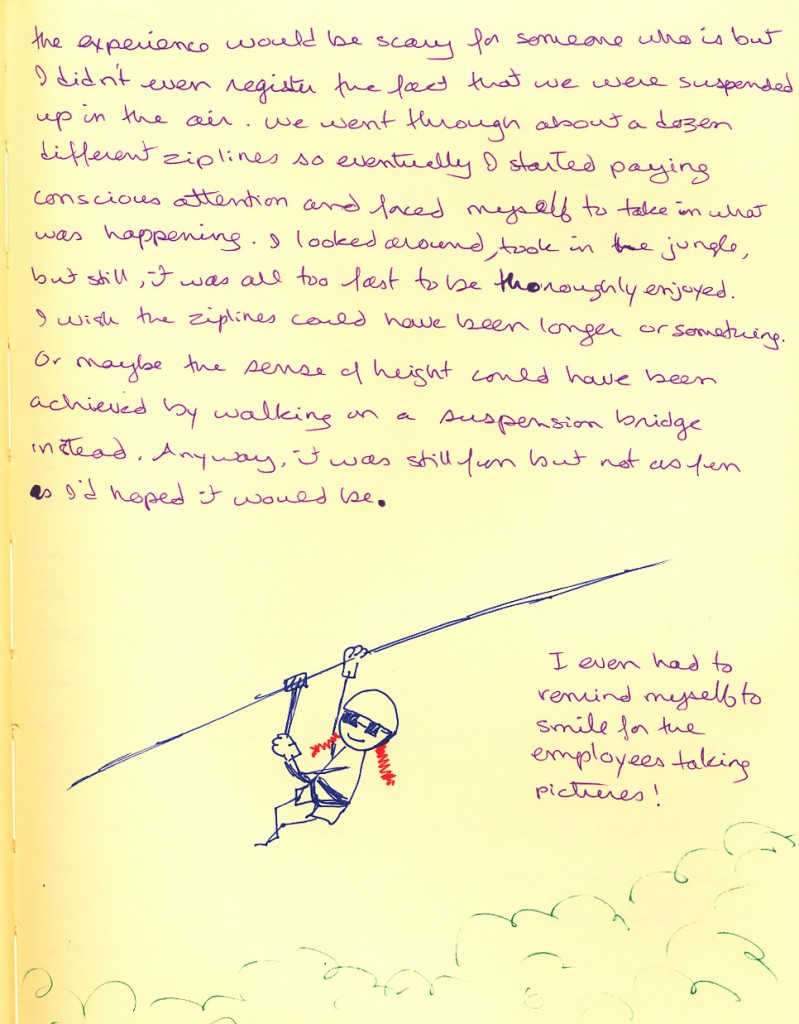 the experience would be scary for someone who is but
I didn't even register the fact that we were suspended
up in the air. We went through about a dozen
different ziplines so eventually I started paying
conscious attention and forced myself to take in what
was happening. I looked around, took in the jungle,
but still, it was all too fast to be thoroughly enjoyed.
I wish the ziplines could have been longer or something.
Or maybe the sense of height could have been
achieved by walking on a suspension bridge
instead. Anyway, it was still fun but not as fun
as I'd hoped it would be.
I even had to
remind myself to
smile for the
employees taking
pictures!